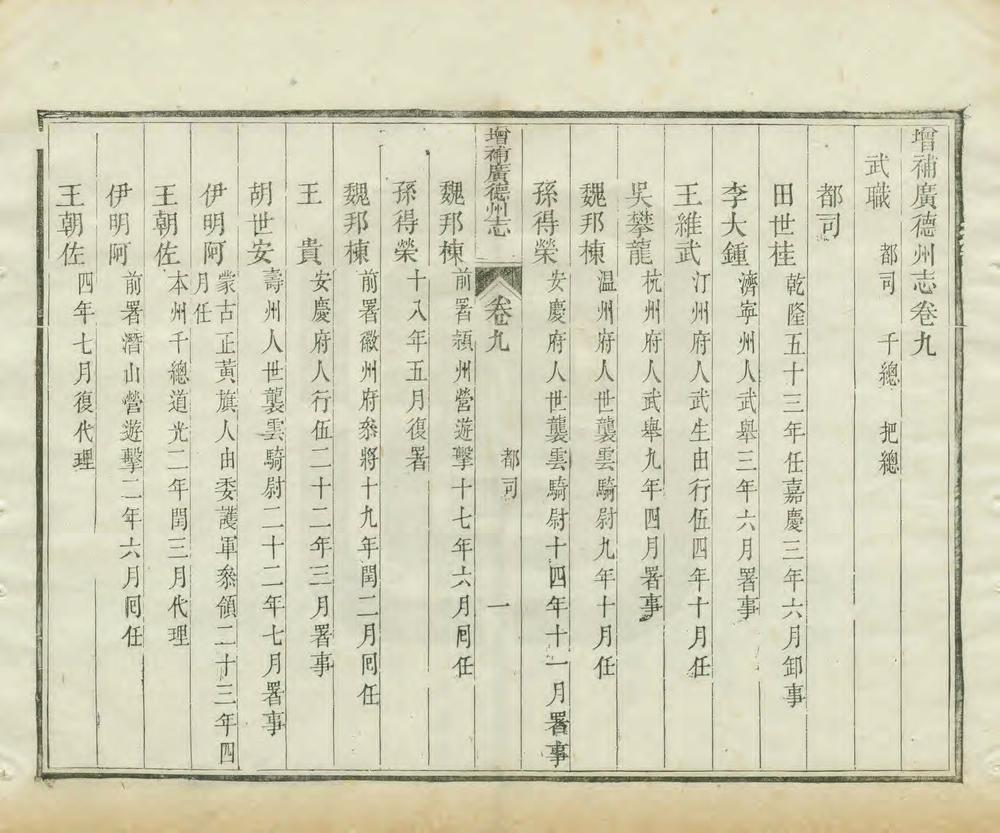 增補廣德州志卷九
武職 都司 千總 把總
都司
田世桂 乾隆五十三年任嘉慶三年六月卸事
李大鍾 濟寧州人武舉三年六月署事
王維武 汀州府人武生由行伍四年十月任
吳攀龍 杭州府人武舉九年四月署事
魏邦棟 温州府人世襲雲騎尉九年十月任
孫得榮 安慶府人世襲雲騎尉十四年十一月署事
增補廣德州志 卷九 都司 一
魏邦棟 前署潁州營遊擊十七年六月囘任
孫得榮 十八年五月復署
魏邦棟 前署徽州府叅將十九年閏二月囘任
王貴 安慶府人行伍二十二年三月署事
胡世安 壽州人世襲雲騎尉二十二年七月署事
伊明阿 蒙古正黃旗人由委護軍叅領二十三年四
月任
王朝佐 本州千總道光二年閏三月代理
伊明阿 前署潛山營遊擊二年六月囘任
王朝佐 四年七月復代理